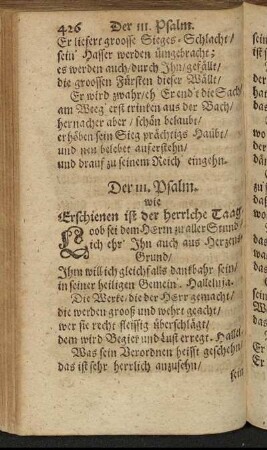 426 Der III. Psalm.
Er liefert groosse Sieges-Schlacht/
sein' Hasser werden ümgebracht;
es werden auch/durch Jhn/gefällt/
die groossen Fürsten dieser Wällt/
Er wird zwahr/eh Er end't die Sach/
am Weeg' erst trinken aus der Bach/
hernacher aber/schön belaubt/
erhöben sein Sieg prächtigs Haübt/
und neu belebet auferstehn/
und drauf zu seinem Reich eingehn.
Der III. Psalm.
wie
Erschienen ist der herrlche Taag
Loob sei dem HErrn zu aller Stund/
ich ehr' Jhn auch aus Herzens
Grund/
Jhm will ich gleichfalls dankbahr sein/
in seiner heiligen Gemein'. Halleluja.
Die Werke/die der HErr gemacht/
die werden grooß und wehrt geacht/
wer sie recht fleissig überschlägt/
dem wird Begier und Lust erregt. Hallel.
Was sein Verordnen heisst geschehn/
das ist sehr herrlich anzusehn/
sein